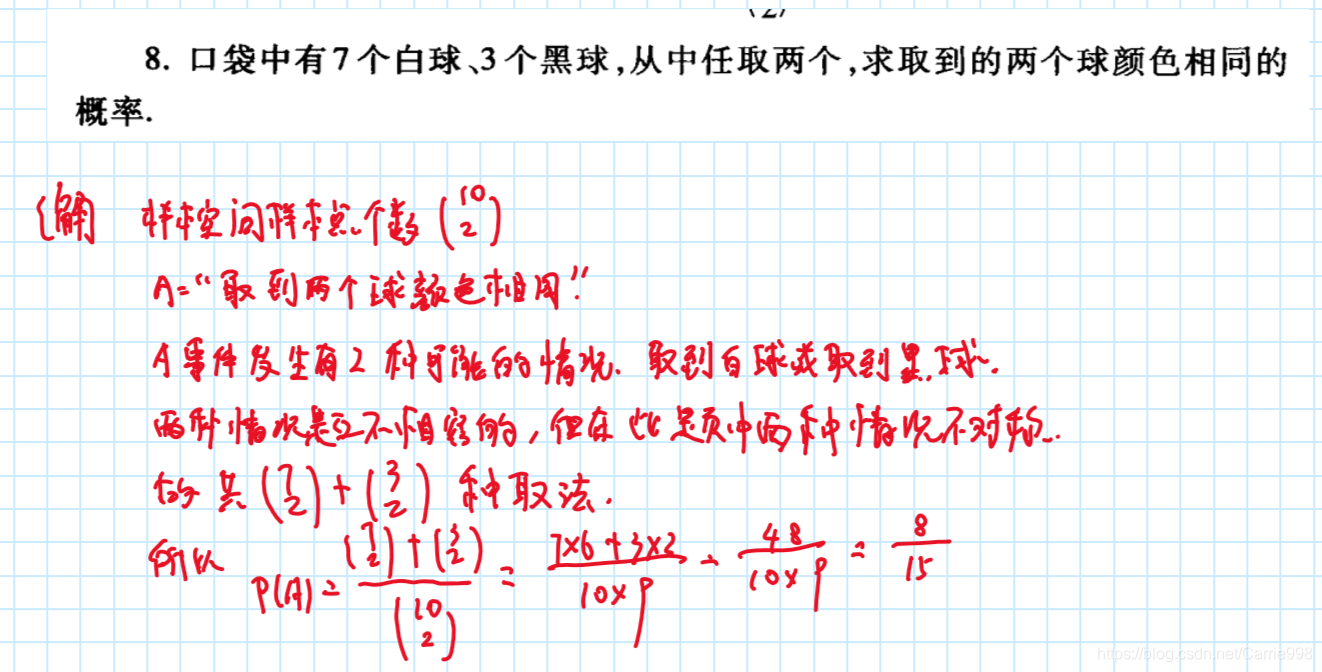 8. 口袋中有7个白球、3个黑球,从中任取两个,求取到的两个球颜色相同的
概率.
(解) 样本空间样本点个数 (10 2)
A="取到两个球颜色相同"
A事件发生有2种可能的情况. 取到白球或取到黑球.
两种情况是互不相容的,但在此题中两种情况不对称.
共 (7 2) + (3 2) 种取法.
所以 P(A) = ((7 2) + (3 2)) / (10 2) = (7×6+3×2) / (10×9) = 48 / (10×9) = 8 / 15
https://blog.csdn.net/Carrie998